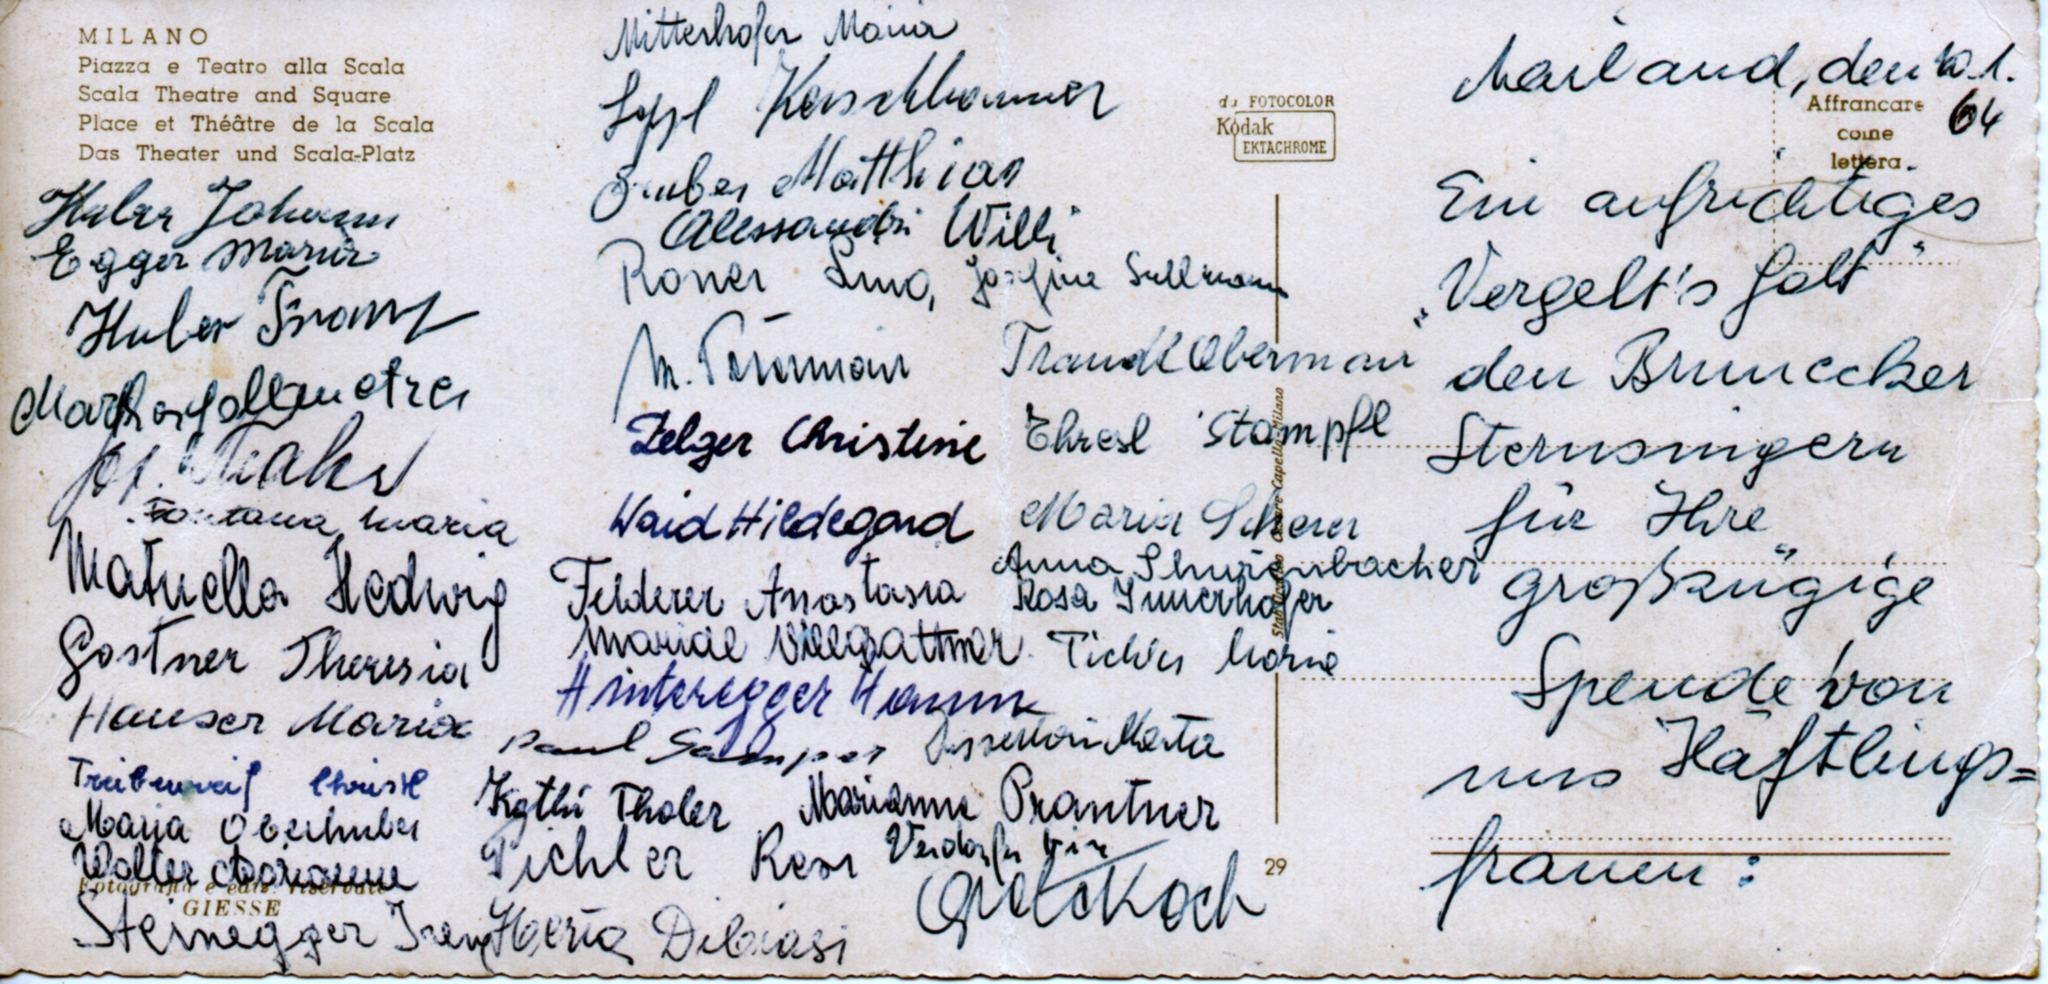 MILANO
Piazza e Teatro alla Scala
Scala Theatre and Square
Place et Théâtre de la Scala
Das Theater und Scala-Platz
Huber Johann
Egger Maria
Huber Franz
Fontana Maria
Matuella Hedwig
Gostner Theresia
Hauser Maria
Christl
Maria Oberhuber
Walter Marianne
Fotografia e ediz. riservata
GIESSE
Steinegger Irene
Mitterhofer Maria
Sepp Kerschbaumer
Gruber Matthias
Alessandri Willi
Roner Luna, Josefine Sullmann
M. Traudl Obermair
Zelger Christine Thresl Stampfl
Waid Hildegard Maria Scherer
Anna
Felderer Anastasia Rosa Innerhofer
Mariedl Villgrattner Pichler Maria
Hinteregger Hanna
Paul Marta
Kathi Thaler Marianne Prantner
Pichler Rosa
Herta Dibiasi
da FOTOCOLOR
Kodak
EKTACHROME
Stab. Grafico Cesare Capello - Milano
29
Mailand, den 10.1.
64
Affrancare
come
lettera
Ein aufrichtiges
„Vergelt's Gott"
den Brunecker
Sternsingern
für Ihre
großzügige
Spende von
uns Häftlings=
frauen: